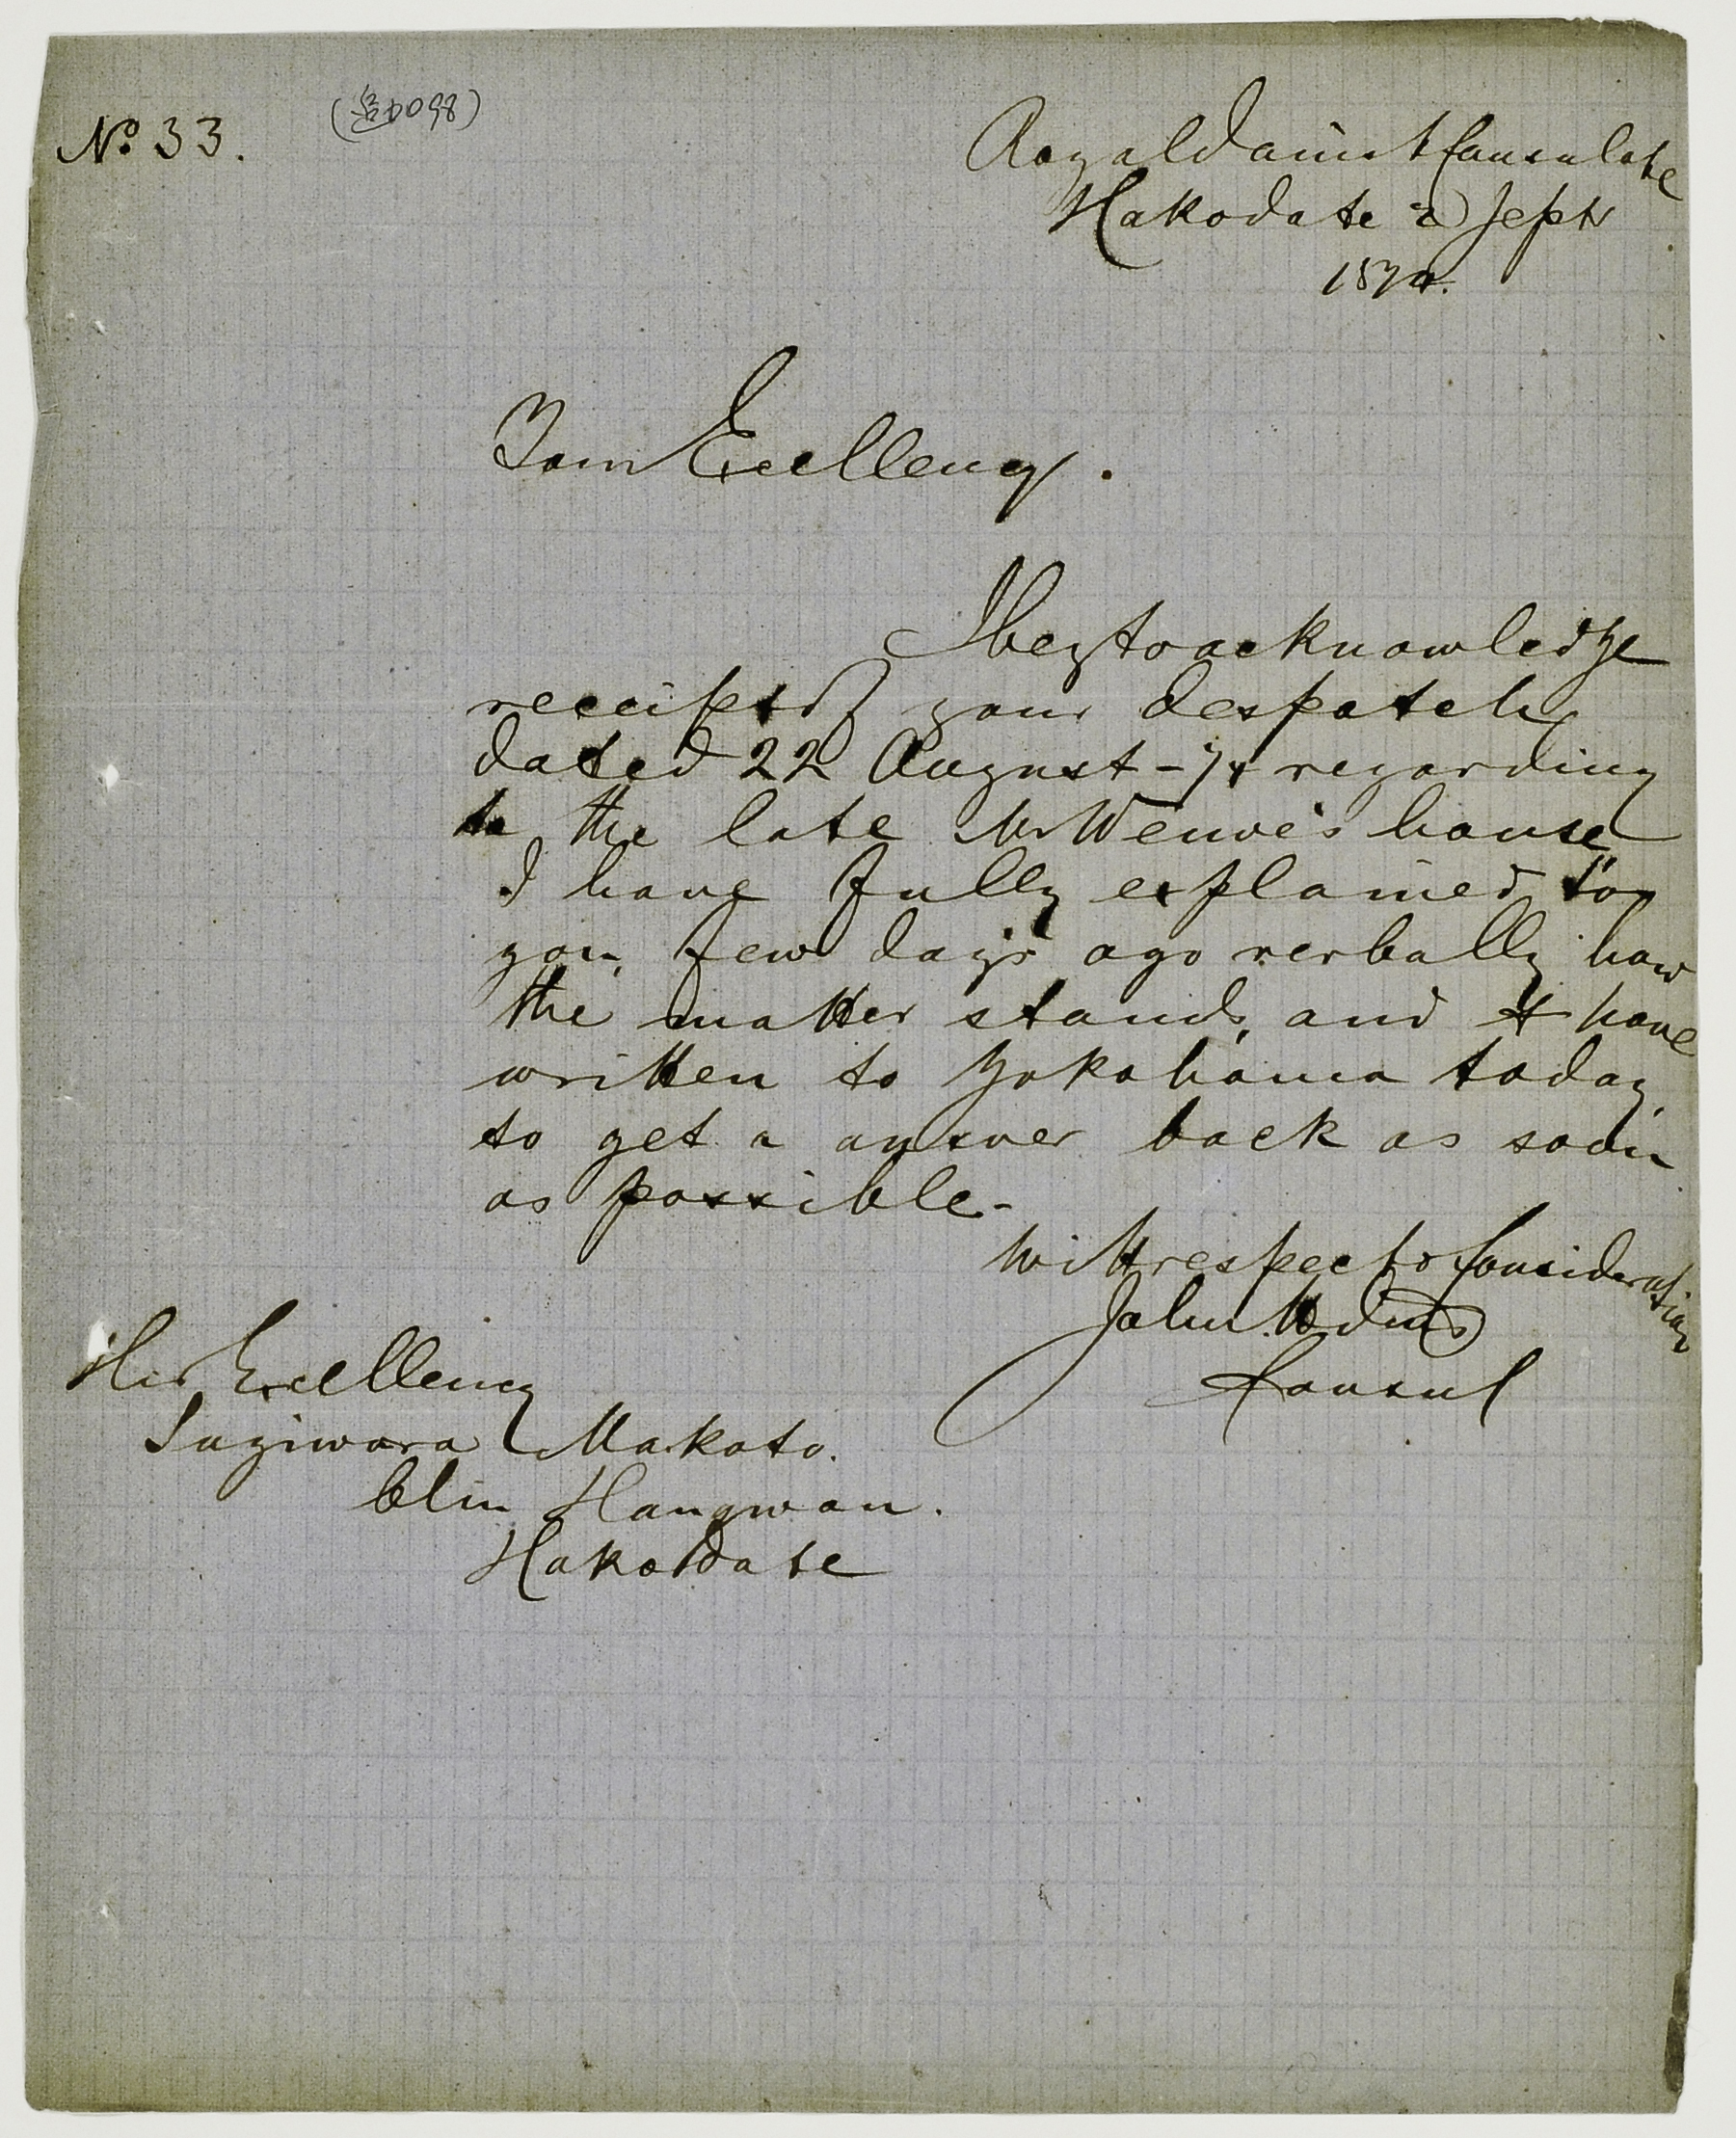 No. 33.
Royal Danish Consulate
Hakodate 2 Septr
1874.
Your Excellency.
I beg to acknowledge
receipt of your despatch
dated 22 August -74 regarding
to the late Mr Weuve's house
I have fully explained to
you few days ago verbally how
the matter stands, and I have
written to Yokohama today
to get a answer back as soon
as possible-
With respect & Consideration
John
Consul
His Excellency
Sugiwara Makoto.
Hangwan.
Hakodate